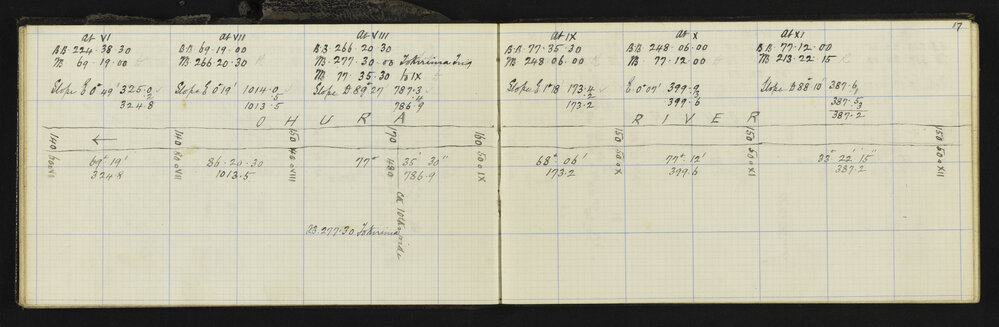 17
At VI
BB 224·38·30
M 69·19·00
Slope E 0° 49' 325·0
·2
324·8
At VII
BB 69·19·00
M 266·20·30
Slope E 0°19' 1014·0
·5
1013·5
At VIII
BB 266·20·30
M 277·30·00 Tokirima Trig
M 77·35·30 to IX
Slope D 89° 27 787·3
·4
786·9
At IX
BB 77·35·30
M 248·06·00
Slope E 1°18 173·4
·2
173·2
At X
BB 248·06·00
M 77·12·00
E 0°07' 399·9
·3
399·6
At XI
BB 77·12·00
M 213·22·15
Slope D 88° 10' 387·6
387·5
·3
387·2
OHURA RIVER
140
VI
←
140
VII
150
VIII
170
160
50 o IX
150
X
150
XI
150
XII
69° 19'
324·8
86·20·30
1013·5
77° 35' 30"
786·9
68° 06'
173·2
77° 12'
399·6
33° 22' 15"
387·2
B. 277·30 Tokirima